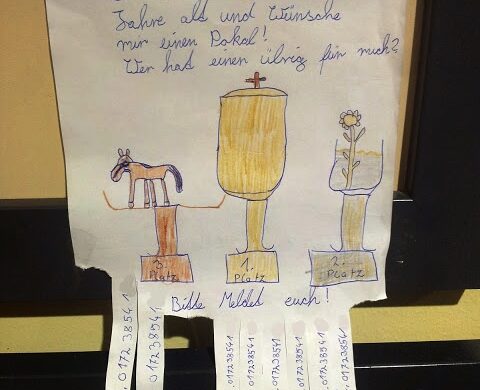 Jahre alt und Wünsche
mir einen Pokal!
Wer had einen übrig für mich?
3.
Platz
1.
Platz
2.
Platz
Bitte Melded euch!
017238541
017238541
017238541
017238541
017238541
017238541
017238541
017238541